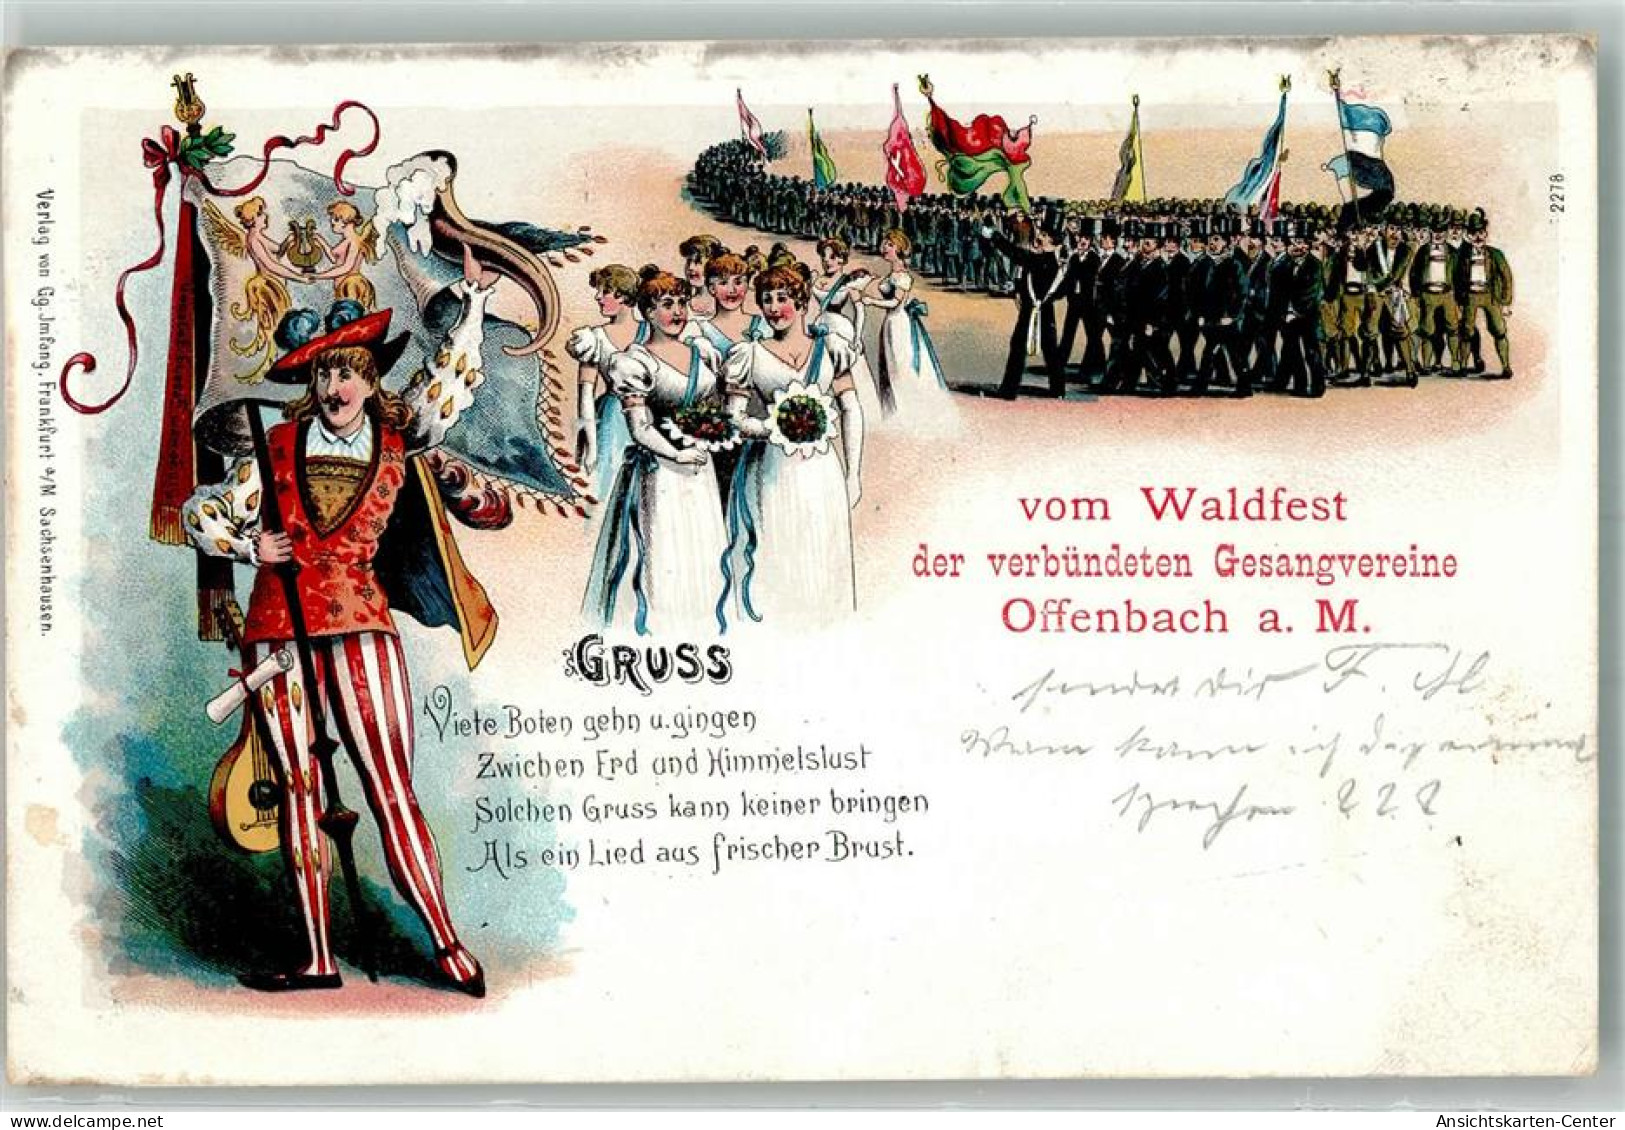 Verlag von Gg. Jmfang, Frankfurt a/M Sachsenhausen.
2278
vom Waldfest
der verbündeten Gesangvereine
Offenbach a. M.
GRUSS
Viele Boten gehn u. gingen
Zwichen Erd und Himmelslust
Solchen Gruss kann keiner bringen
Als ein Lied aus frischer Brust.
sendet dir F.
Wann kann ich
sprechen ? ? ?
Ansichtskarten-Center